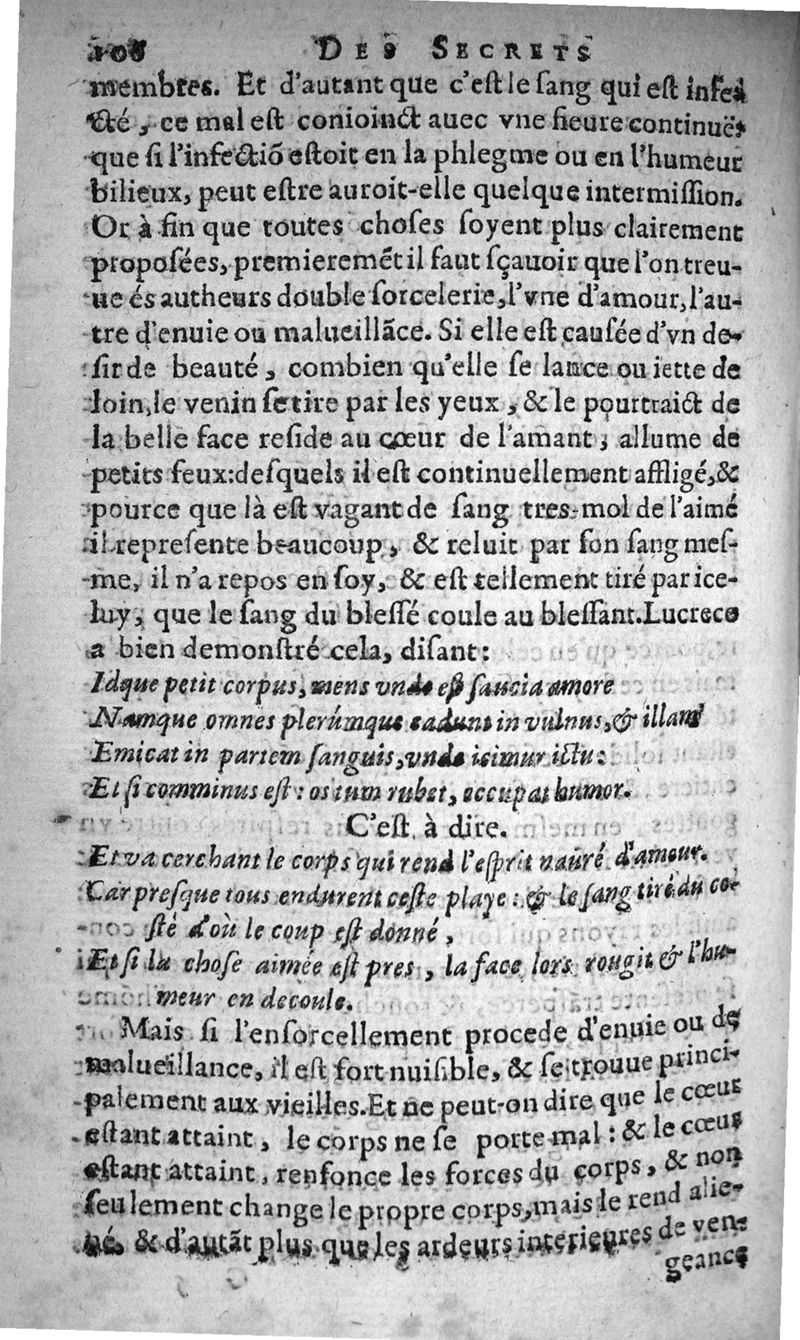 208 DES SECRETS
membres. Et d'autant que c'eſt le ſang qui eſt infe-
cté, ce mal eſt conioinct auec vne fieure continuë,
que ſi l'infectiõ eſtoit en la phlegme ou en l'humeur
bilieux, peut eſtre auroit-elle quelque intermiſſion.
Or à fin que toutes choſes ſoyent plus clairement
propoſées, premieremẽt il faut ſçauoir que l'on treu-
ue és autheurs double ſorcelerie, l'vne d'amour, l'au-
tre d'enuie ou malueillãce. Si elle eſt cauſée d'vn de-
ſir de beauté, combien qu'elle ſe lance ou iette de
loin, le venin ſe tire par les yeux, & le pourtraict de
la belle face reſide au cœur de l'amant, allume de
petits feux: deſquels il eſt continuellement affligé, &
pource que là eſt vagant de ſang tres-mol de l'aimé
il repreſente beaucoup, & reluit par ſon ſang meſ-
me, il n'a repos en ſoy, & eſt tellement tiré par ice-
luy, que le ſang du bleſſé coule au bleſſant. Lucrece
a bien demonſtré cela, diſant:
Idque petit corpus, mens vnde eſt ſaucia amore
Namque omnes plerúmque cadunt in vulnus, & illam
Emicat in partem ſanguis, vnde icimur ictu:
Et ſi comminus eſt: os tum rubet, occupat humor.
C'eſt à dire.
Et va cerchant le corps qui rend l'eſprit nauré d'amour.
Car preſque tous endurent ceſte playe: & le ſang tiré du co-
ſté d'où le coup eſt donné,
Et ſi la choſe aimée eſt pres, la face lors rougit & l'hu-
meur en decoule.
Mais ſi l'enſorcellement procede d'enuie ou de
malueillance, il eſt fort nuiſible, & ſe trouue princi-
palement aux vieilles. Et ne peut-on dire que le cœur
eſtant attaint, le corps ne ſe porte mal: & le cœur
eſtant attaint, renfonce les forces du corps, & non
ſeulement change le propre corps, mais le rend alie-
né, & d'autãt plus que les ardeurs interieures de ven-
geance